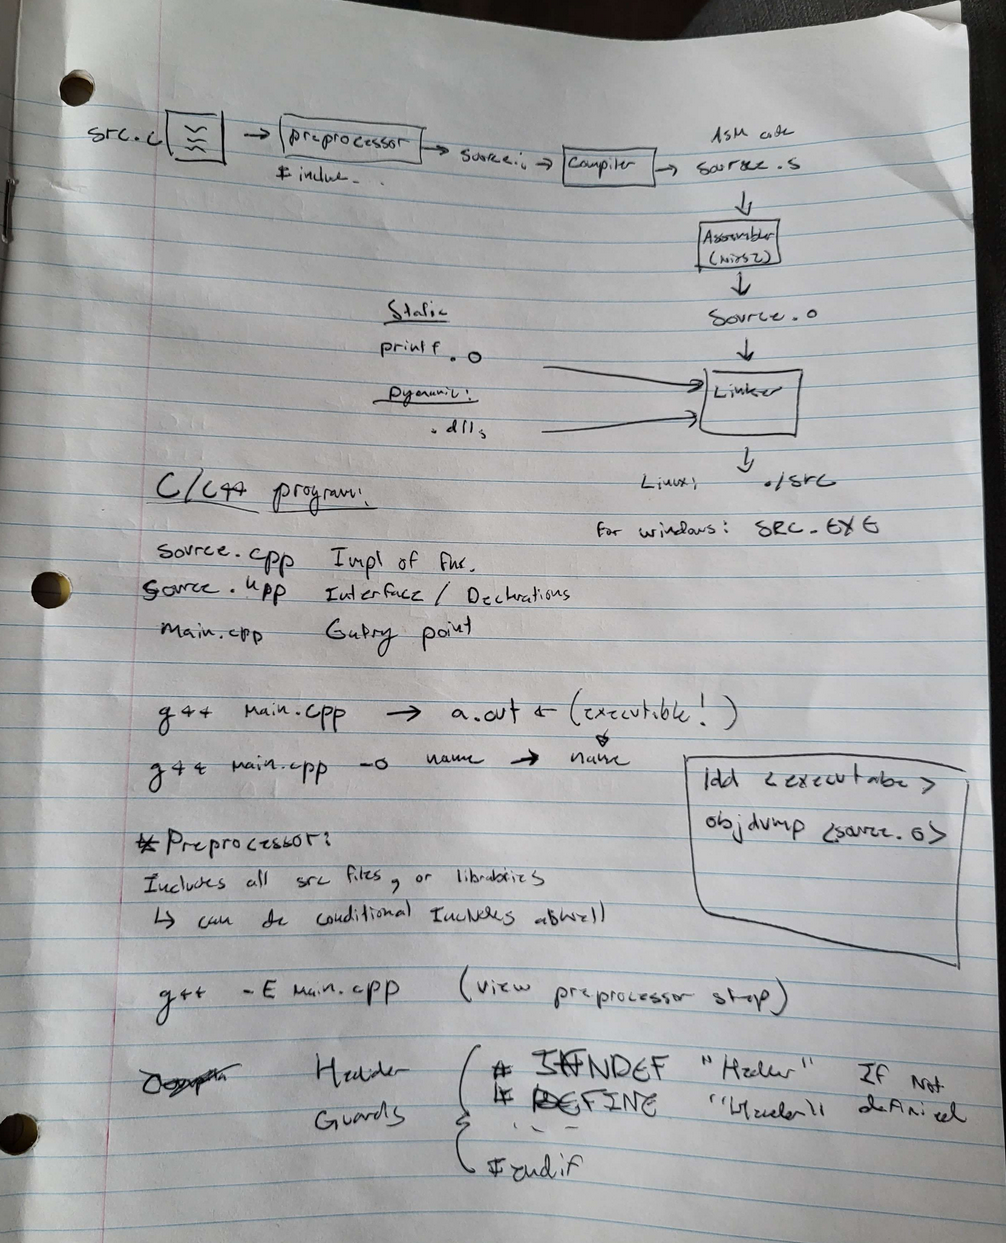 src.c → preprocessor → source.i → Compiler → source.s
ASM code
# include...
Assembler
↓
Source.o
↓
Static
printf.o
Linker
Dynamic:
.dlls
↓
Linux: ./src
For windows: SRC.EXE
C/C++ program:
source.cpp Impl of fnx.
source.hpp Interface / Declrations
main.cpp Entry point
g++ main.cpp → a.out ← (executible!)
g++ main.cpp -o name → name
ldd <executabe>
objdump <source.o>
* Preprocessor:
Includes all src files, or libraries
↳ can be conditional Includes aswell
g++ -E main.cpp (view preprocessor step)
Header Guards
# IFNDEF "Header" If Not defined
# DEFINE "Header"
...
# endif